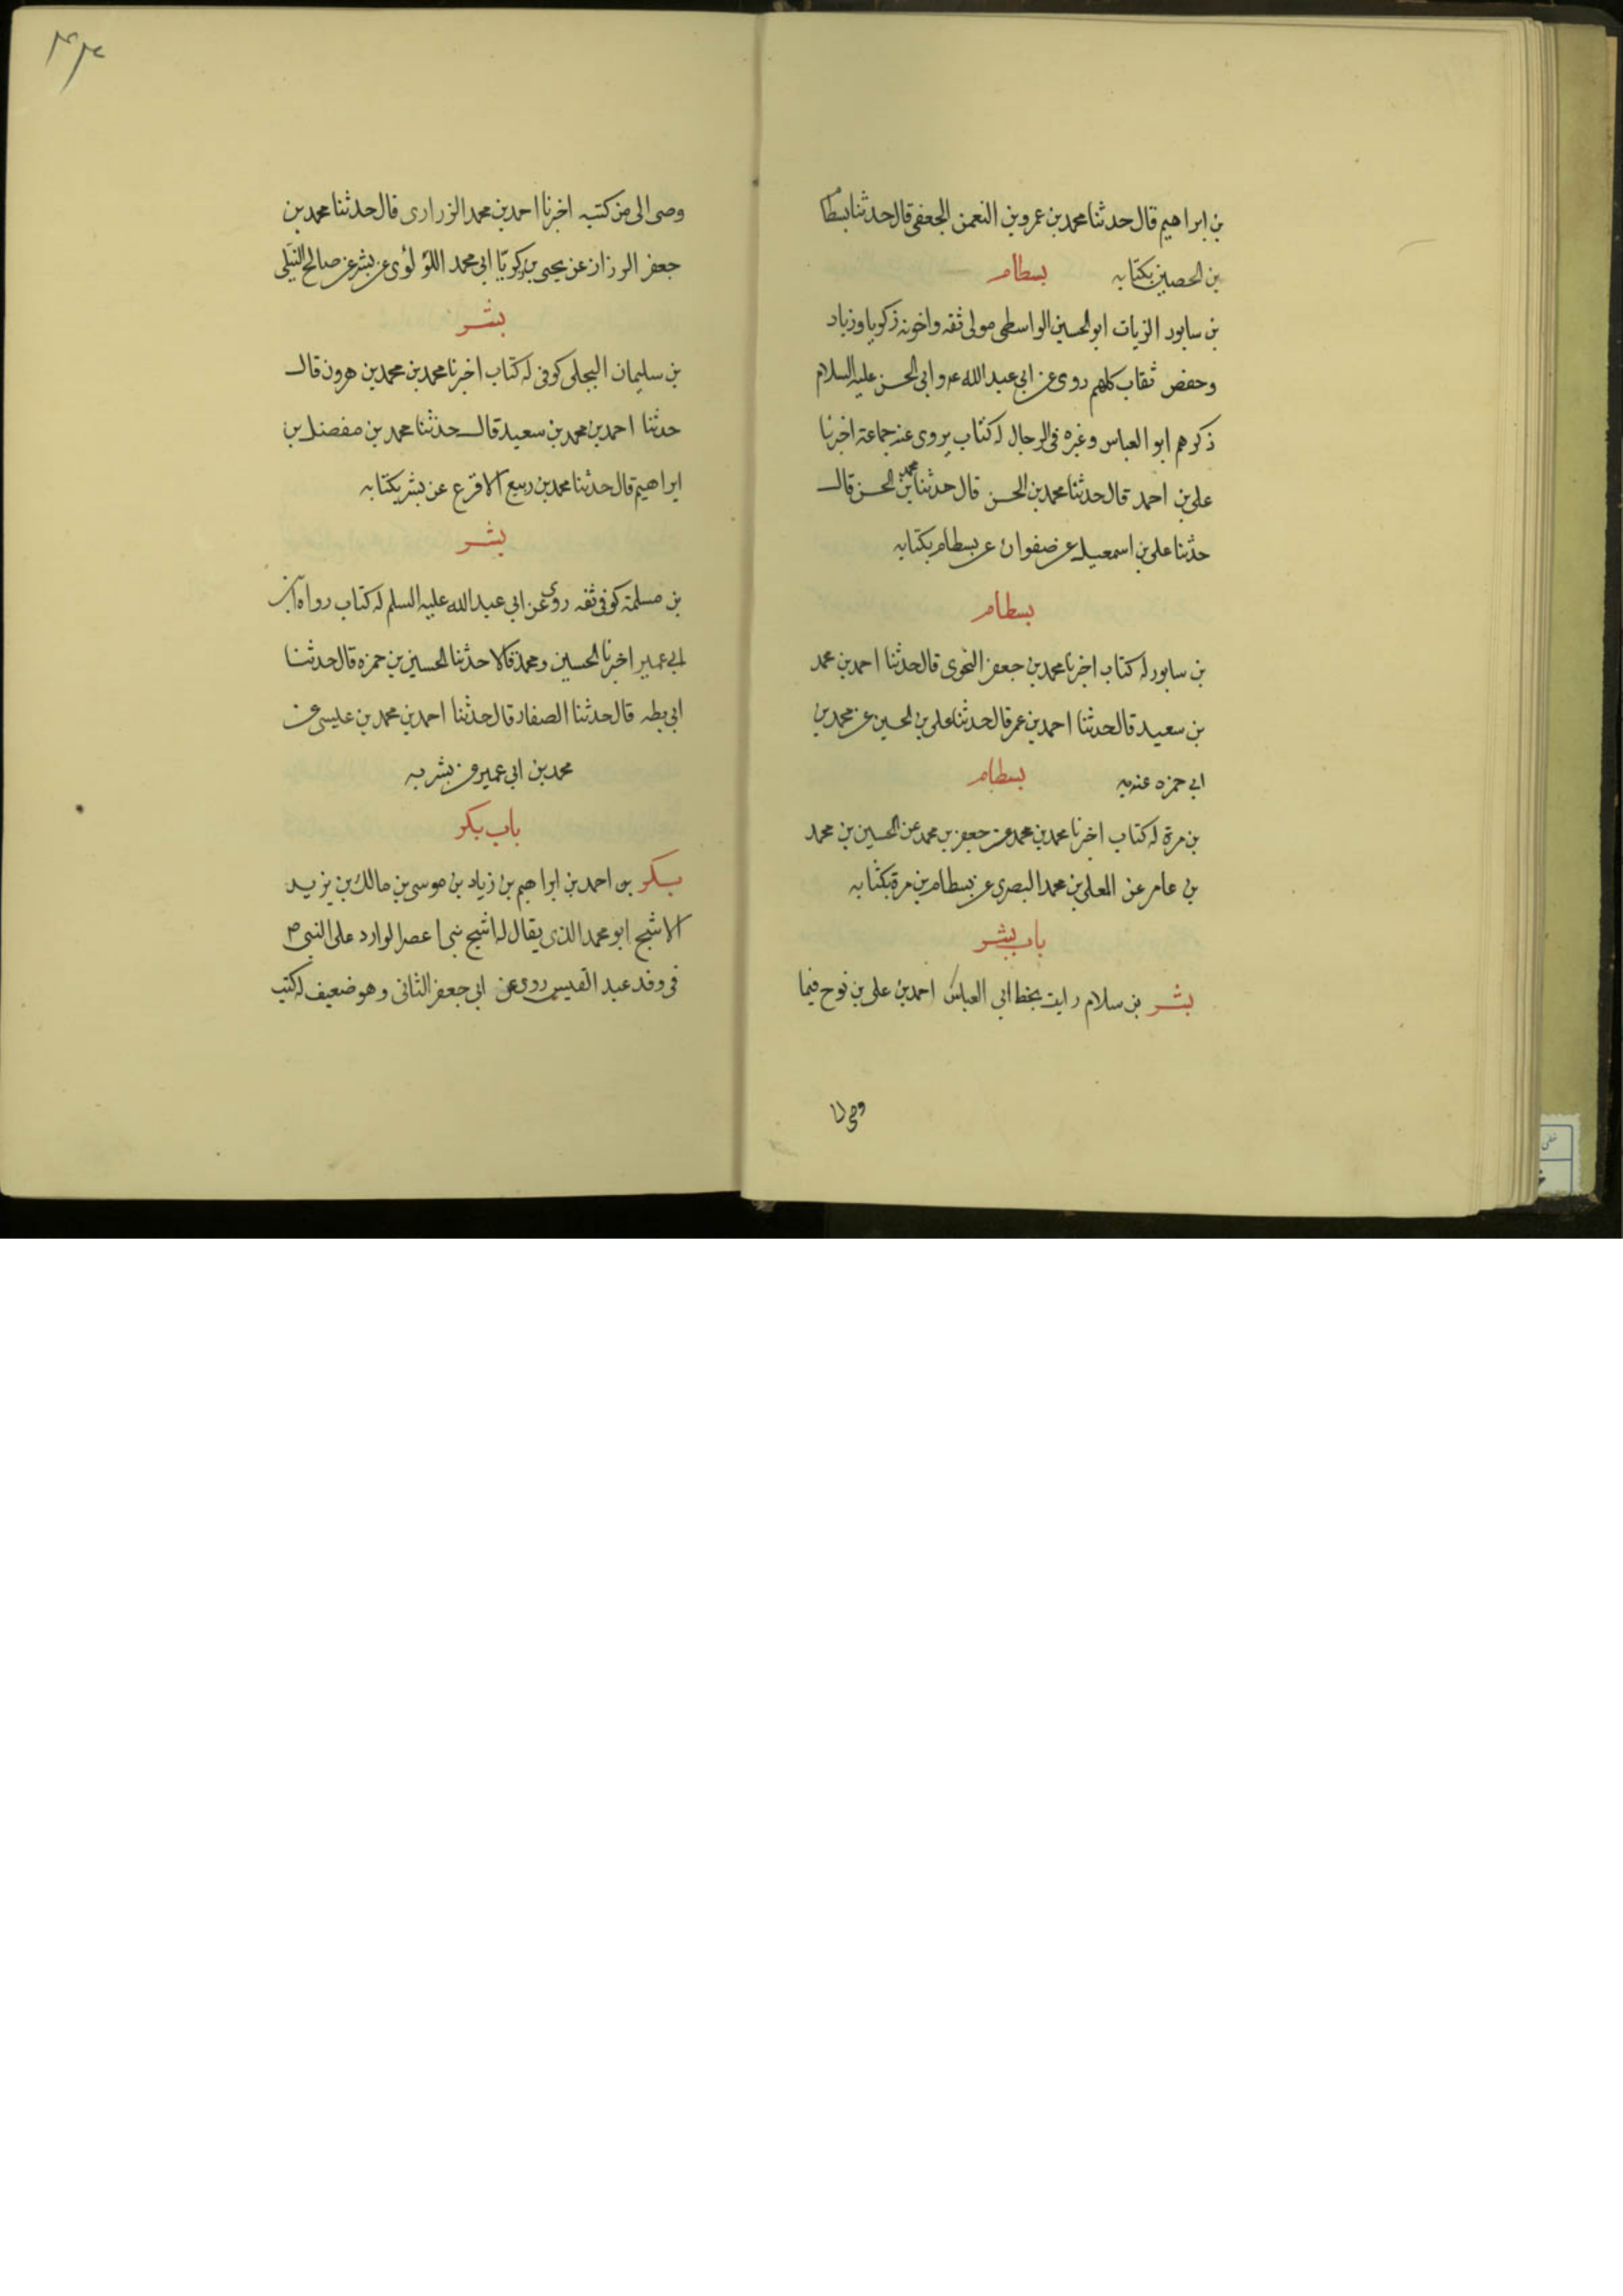 بن ابراهيم قال حدثنا محمد بن عمرو بن النعمن الجعفى قال حدثنا بسطام
بن الحصين بكتابه بسطام
بن سابور الزيات ابو الحسين الواسطى مولى ثقه واخوته زكريا وزياد
وحفص ثقاب كلهم روى عن ابى عبد الله عه وابى الحسن عليه السلام
ذكرهم ابو العباس وغيره فى الرجال له كتاب يروى عنه جماعة اخبرنا
على بن احمد قال حدثنا محمد بن الحسن قال حدثنا محمد بن الحسن قال
حدثنا على بن اسمعيل عن صفوان عن بسطام بكتابه
بسطام
بن سابور له كتاب اخبرنا محمد بن جعفر النحوى قال حدثنا احمد بن محمد
بن سعيد قال حدثنا احمد بن عمر قال حدثنا على بن الحسين عن محمد بن
ابى حمزه عنه به بسطام
بن مرة له كتاب اخبرنا محمد بن محمد عن جعفر بن محمد عن الحسين بن محمد
بن عامر عن المعلى بن محمد البصرى عن بسطام بن مرة بكتابه
باب بشر
بشر بن سلام رايت بخط ابى العباس احمد بن على بن نوح فيما
وصى الى
٣٤
وصى الى من كتبه اخبرنا احمد بن محمد الزرارى قال حدثنا محمد بن
جعفر الرزاز عن يحيى بن زكريا ابى محمد اللؤلؤى عن بشر عن صالح النيلى
بشر
بن سليمان البجلى كوفى له كتاب اخبرنا محمد بن محمد بن هرون قال
حدثنا احمد بن محمد بن سعيد قال حدثنا محمد بن مفضل بن
ابراهيم قال حدثنا محمد بن ربيع الاقرع عن بشر بكتابه
بشر
بن مسلمة كوفى ثقه روى عن ابى عبد الله عليه السلم له كتاب رواه ابن
ابى عمير اخبرنا الحسين ومحمد قالا حدثنا الحسين بن حمزه قال حدثنا
ابى بطه قال حدثنا الصفار قال حدثنا احمد بن محمد بن عيسى عن
محمد بن ابى عمير عن بشر به
باب بكر
بكر بن احمد بن ابراهيم بن زياد بن موسى بن مالك بن يزيد
الاشج ابو محمد الذى يقال له اشج بنى اعصر الوارد على النبى ص
فى وفد عبد القيس روى عن ابى جعفر الثانى وهو ضعيف له كتب